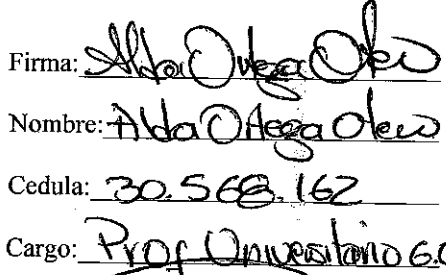 Firma: Alda Ortega Otero
Nombre: Alda Ortega Otero
Cedula: 30.568.162
Cargo: Prof Universitario G.